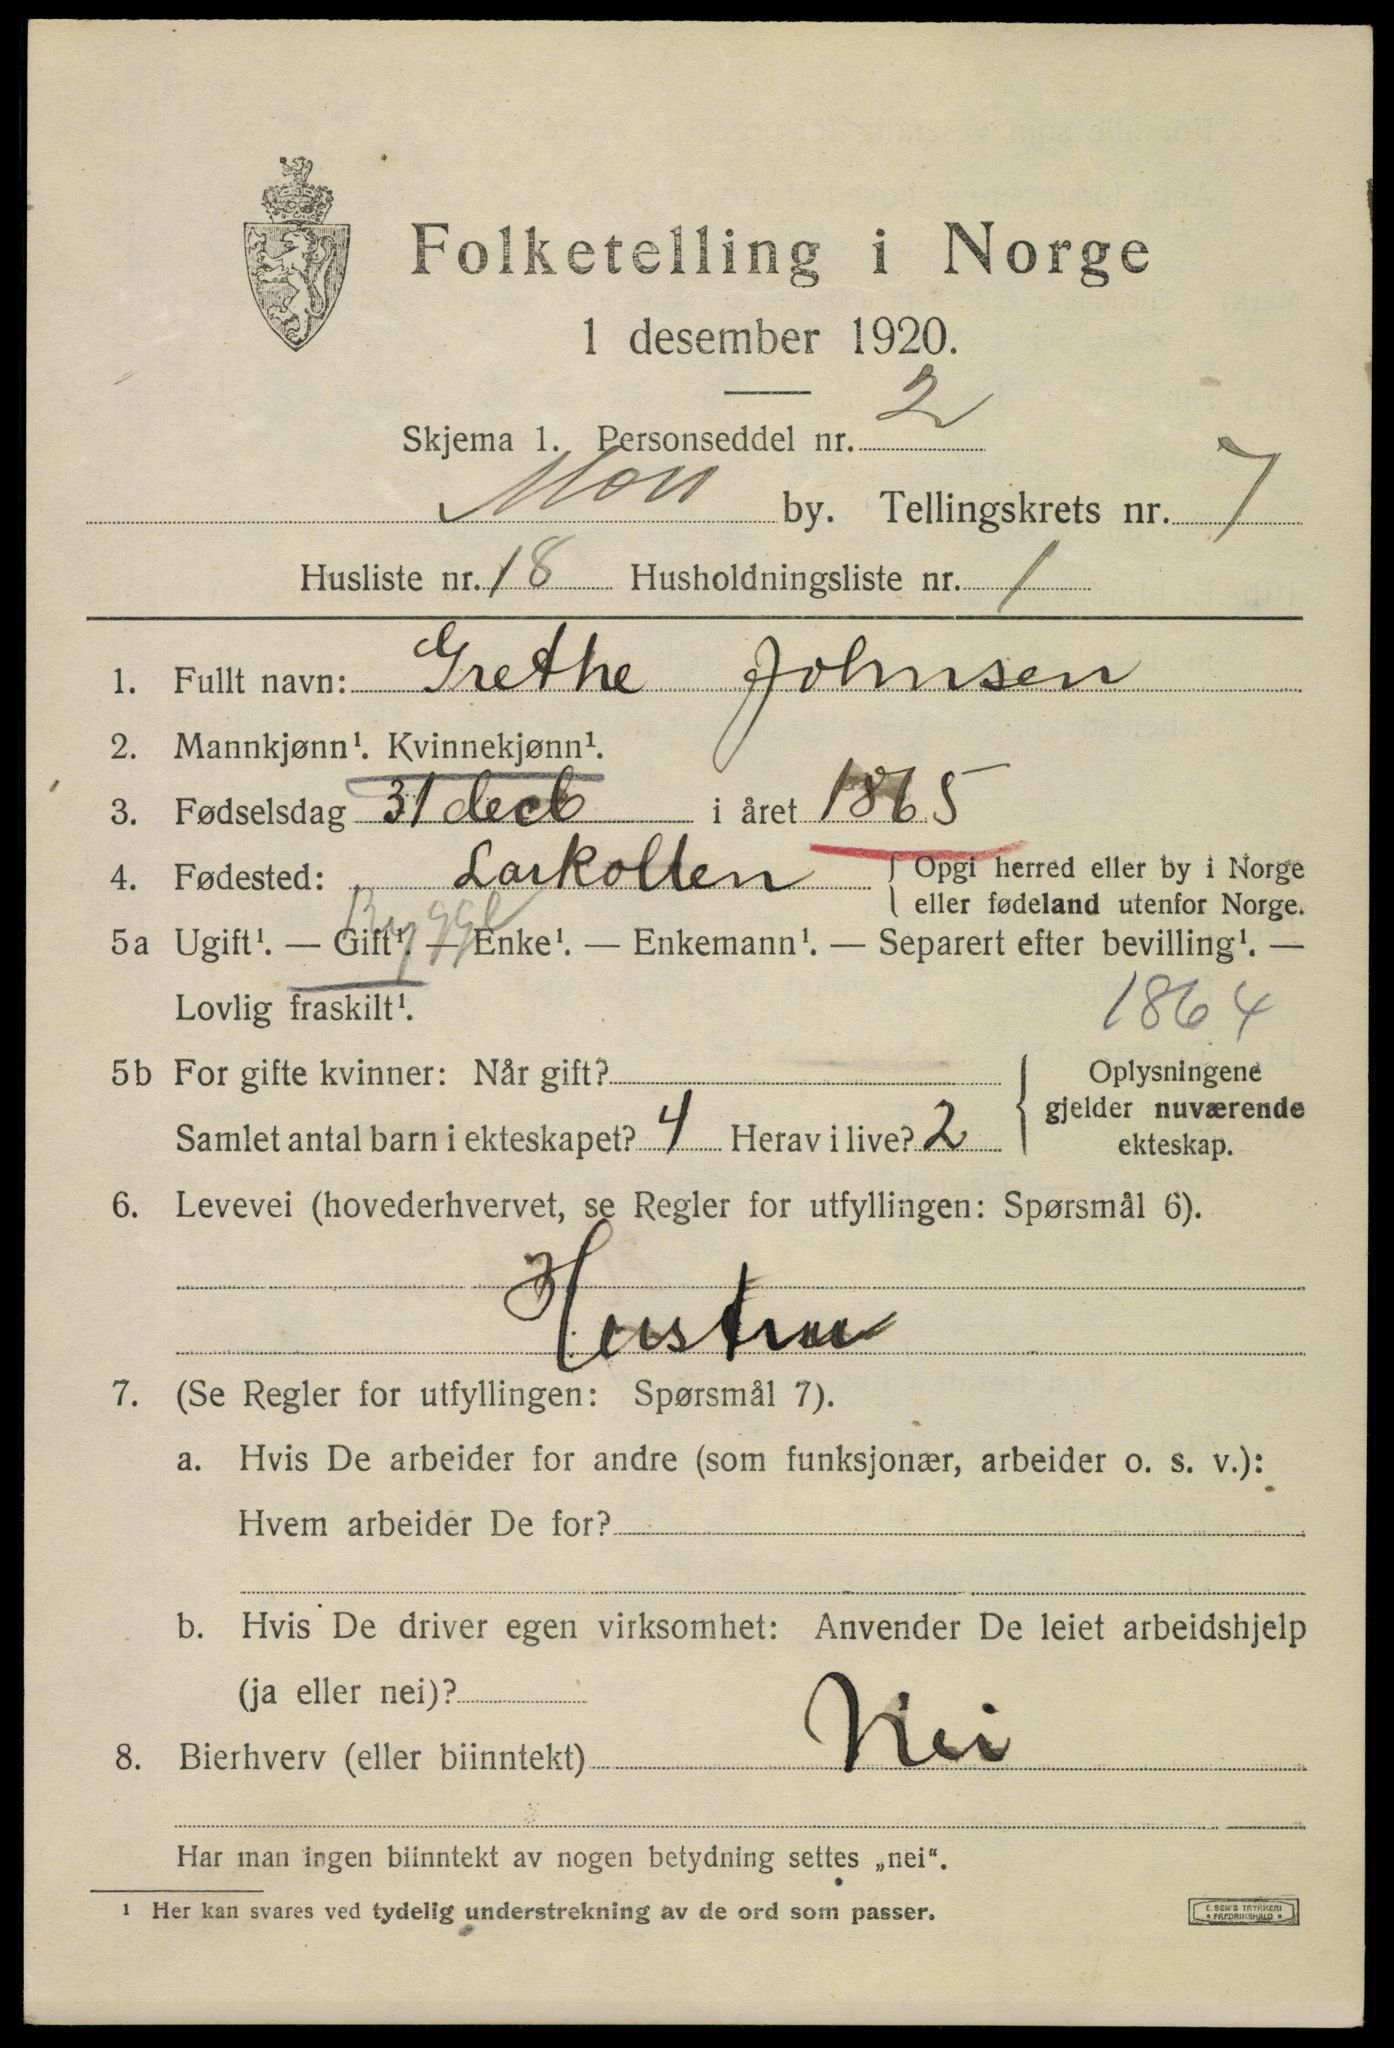 Folketelling i Norge
1 desember 1920.
Skjema 1. Personseddel nr. 2
Moss by. Tellingskrets nr. 7
Husliste nr. 18 Husholdningsliste nr. 1
1. Fullt navn: Grethe Johnsen
2. Mannkjønn¹. Kvinnekjønn¹.
3. Fødselsdag 31 decb i året 1865
4. Fødested: Larkollen { Opgi herred eller by i Norge
eller fødeland utenfor Norge.
Rygge
5a Ugift¹. — Gift¹. — Enke¹. — Enkemann¹. — Separert efter bevilling¹. —
Lovlig fraskilt¹. 1864
5b For gifte kvinner: Når gift? { Oplysningene
gjelder nuværende
Samlet antal barn i ekteskapet? 4 Herav i live? 2
ekteskap.
6. Levevei (hovederhvervet, se Regler for utfyllingen: Spørsmål 6).
Hustru
7. (Se Regler for utfyllingen: Spørsmål 7).
a. Hvis De arbeider for andre (som funksjonær, arbeider o. s. v.):
Hvem arbeider De for?
b. Hvis De driver egen virksomhet: Anvender De leiet arbeidshjelp
(ja eller nei)?
8. Bierhverv (eller biinntekt) Nei
Har man ingen biinntekt av nogen betydning settes „nei“.
¹ Her kan svares ved tydelig understrekning av de ord som passer.
E. SEM'S TRYKKERI
• FREDRIKSHALD •